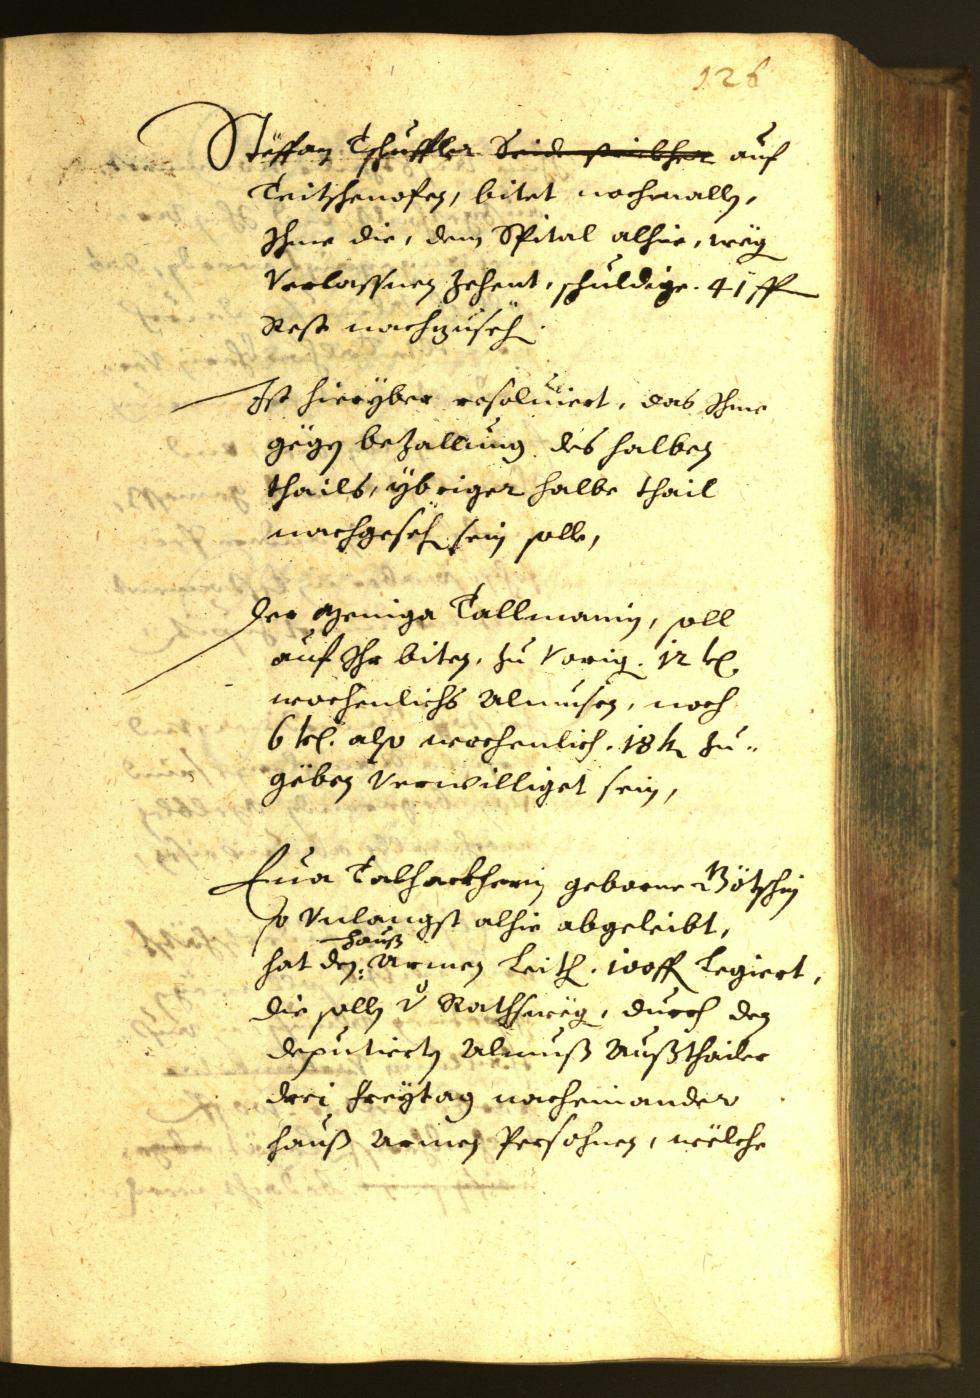 126
Stëffan Tschuffler Seidenstickher auf
Teitschenofen, bitet nochmalln,
Ihme die, dem Spital alhie, weg
Verlassnen Zehent, schuldige. 41 ff
Rest nachzusëch.
Ist hieryber resolviert, das Ihme
gëgn bezallung des halben
thails, ÿbriger halbe thail
nachgesëch sein solle,
Der Tallmanin, soll
auf Ihr biten, zu Vorig. 12 kr.
wochenlichs Almusen, noch
6 kr. also wochenlich. 18 kr zu-
gëben Verwilliget sein,
Eua Talhackherin geborne Bötschin
so Vnlangst alhie abgeleibt,
hauß
hat den: Armen Leith. 100 ff Legiert,
die solln v Rathswëg, durch den
deputiertn Almuß Außthailer
drei Freÿtag nacheinander
hauß Armen Persohnen, wëlche